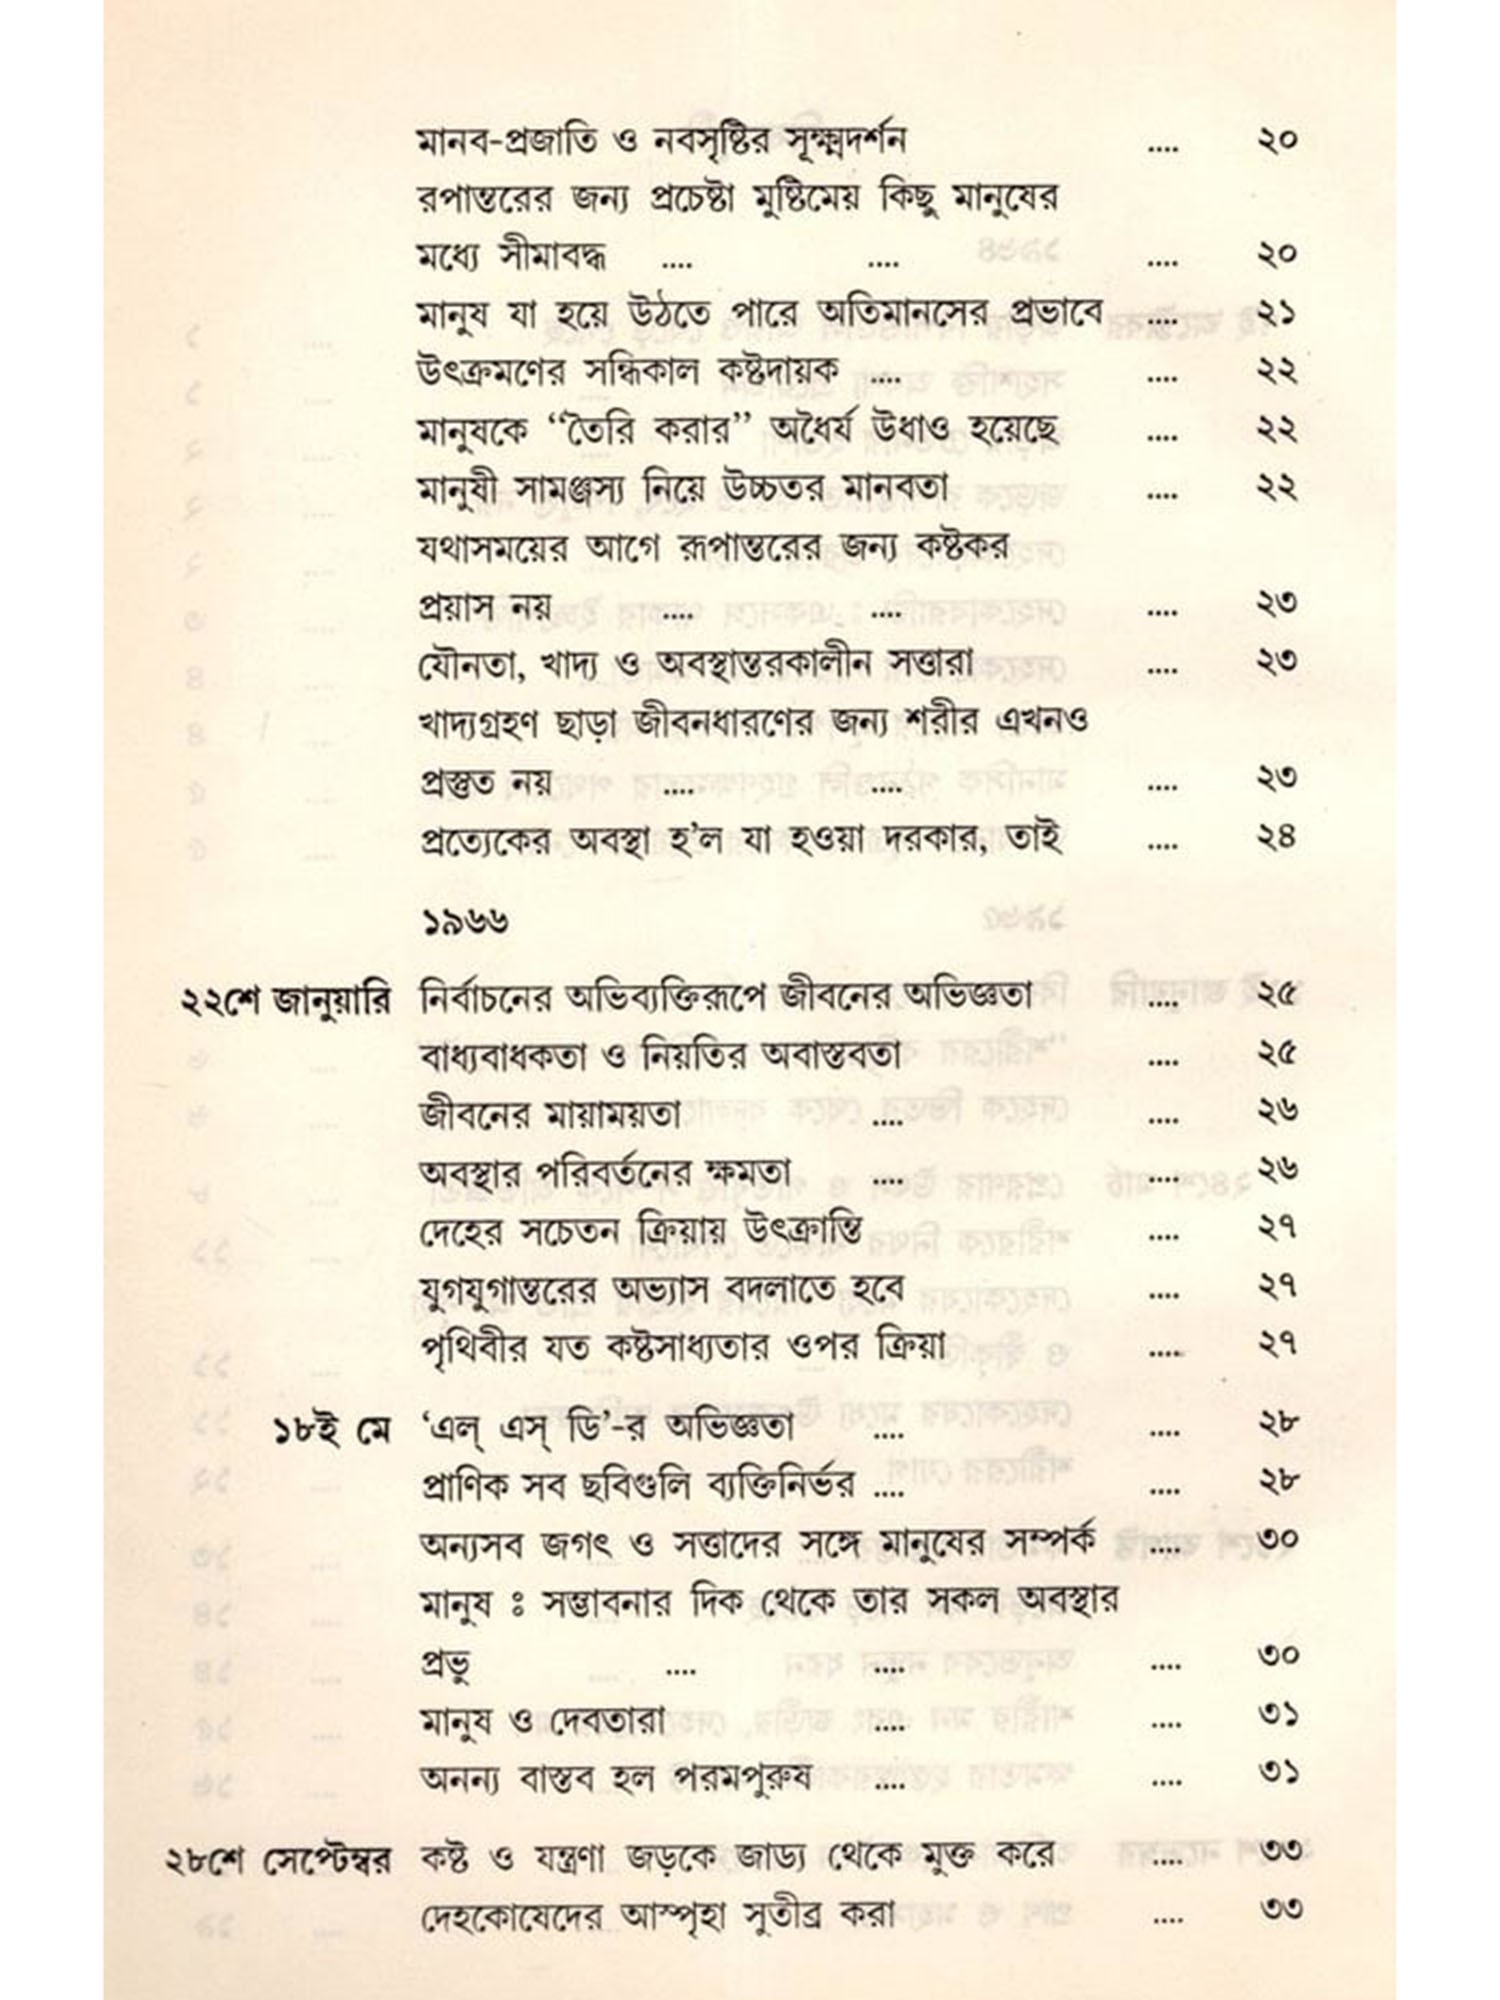 মানব-প্রজাতি ও নবসৃষ্টির সূক্ষ্মদর্শন .... ২০
রপান্তরের জন্য প্রচেষ্টা মুষ্টিমেয় কিছু মানুষের
মধ্যে সীমাবদ্ধ .... .... .... ২০
মানুষ যা হয়ে উঠতে পারে অতিমানসের প্রভাবে .... ২১
উৎক্রমণের সন্ধিকাল কষ্টদায়ক .... .... ২২
মানুষকে “তৈরি করার” অধৈর্য উধাও হয়েছে .... ২২
মানুষী সামঞ্জস্য নিয়ে উচ্চতর মানবতা .... ২২
যথাসময়ের আগে রূপান্তরের জন্য কষ্টকর
প্রয়াস নয় .... .... .... ২৩
যৌনতা, খাদ্য ও অবস্থান্তরকালীন সত্তারা .... ২৩
খাদ্যগ্রহণ ছাড়া জীবনধারণের জন্য শরীর এখনও
প্রস্তুত নয় .... .... .... ২৩
প্রত্যেকের অবস্থা হ’ল যা হওয়া দরকার, তাই .... ২৪
১৯৬৬
২২শে জানুয়ারি নির্বাচনের অভিব্যক্তিরূপে জীবনের অভিজ্ঞতা .... ২৫
বাধ্যবাধকতা ও নিয়তির অবাস্তবতা .... ২৫
জীবনের মায়াময়তা .... .... ২৬
অবস্থার পরিবর্তনের ক্ষমতা .... .... ২৬
দেহের সচেতন ক্রিয়ায় উৎক্রান্তি .... ২৭
যুগযুগান্তরের অভ্যাস বদলাতে হবে .... ২৭
পৃথিবীর যত কষ্টসাধ্যতার ওপর ক্রিয়া .... ২৭
১৮ই মে ‘এল্ এস্ ডি’-র অভিজ্ঞতা .... .... ২৮
প্রাণিক সব ছবিগুলি ব্যক্তিনির্ভর .... .... ২৮
অন্যসব জগৎ ও সত্তাদের সঙ্গে মানুষের সম্পর্ক .... ৩০
মানুষ ঃ সম্ভাবনার দিক থেকে তার সকল অবস্থার
প্রভু .... .... .... ৩০
মানুষ ও দেবতারা .... .... ৩১
অনন্য বাস্তব হল পরমপুরুষ .... .... ৩১
২৮শে সেপ্টেম্বর কষ্ট ও যন্ত্রণা জড়কে জাড্য থেকে মুক্ত করে .... ৩৩
দেহকোষেদের আস্পৃহা সুতীব্র করা .... ৩৩